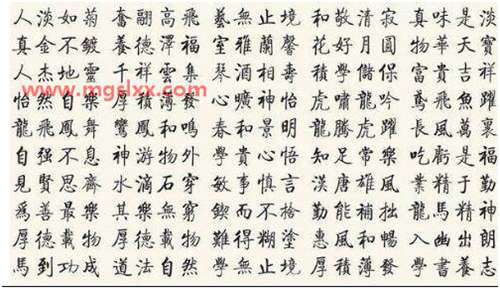 人淡如菊 奮翮高飛 藝無止境 和敬清寂 真味是淡
真金不鍍 養德澤福 室雅蘭馨 花好月圓 物華天寶
人杰地靈 千祥雲集 琴 酒 相 壽 富貴吉祥
怡然自樂 厚積薄發 心曠神怡 虎嘯龍吟 鳶飛魚躍
www.mgslxx.com
龍飛鳳舞 鸞鳳和鳴 春和景明 龍騰虎躍 長風萬裏
自强不息 神游物外 學貴心悟 知足常樂 吃虧是福
見賢思齊 水滴石穿 敏事慎言 漢唐雄風 業精于勤
為善最樂 其樂無窮 鍥而不捨 勤能補拙 龍馬精神
厚德載物 厚德載物 難得糊塗 惠風和暢 入幽出朗
馬到功成 道法自然 學無止境 厚積薄發 學書養志